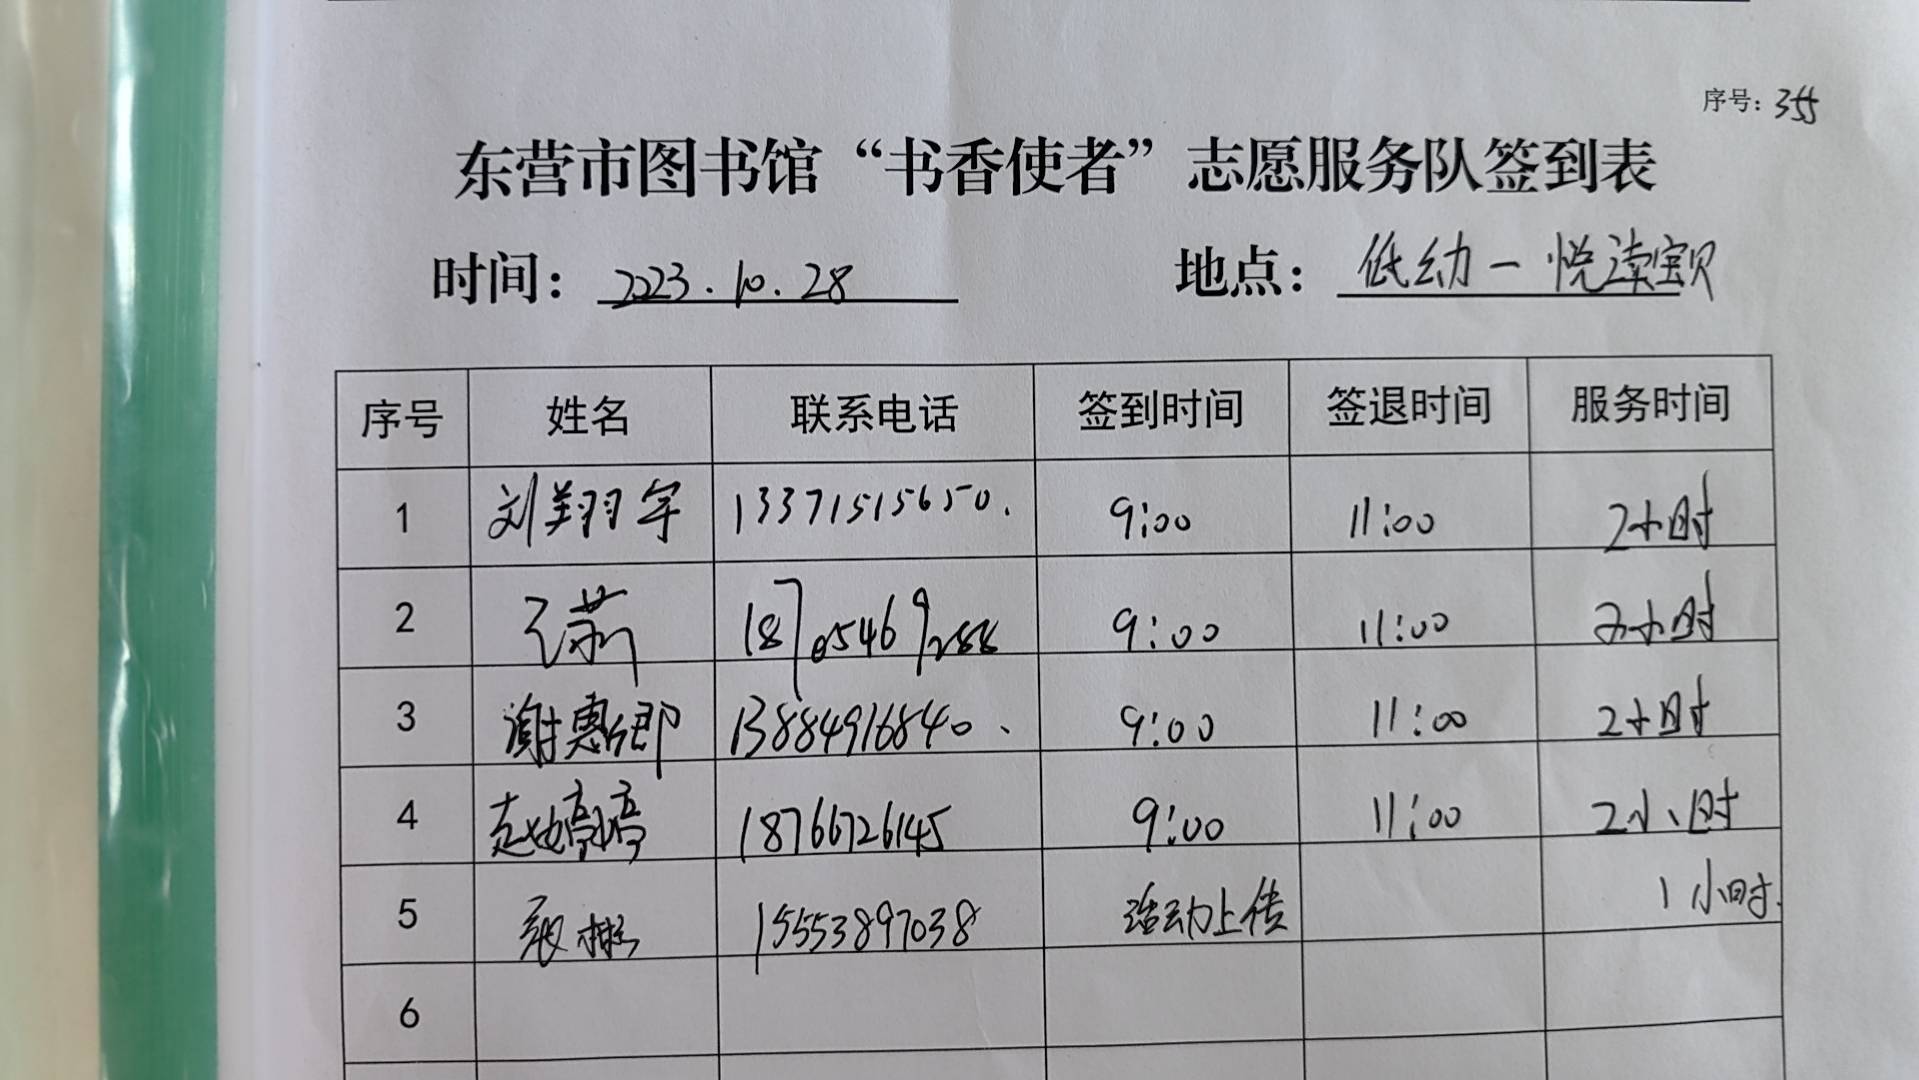 序号：355
东营市图书馆“书香使者”志愿服务队签到表
时间：2023.10.28 地点：低幼一悦读宝贝
序号 姓名 联系电话 签到时间 签退时间 服务时间
1 刘翔宇 13371515650. 9:00 11:00 2小时
2 18705469288 9:00 11:00 2小时
3 谢惠卿 13884916840. 9:00 11:00 2小时
4 赵婷婷 18766726145 9:00 11:00 2小时
5 张彬 15553897038 活动上传 1小时.
6